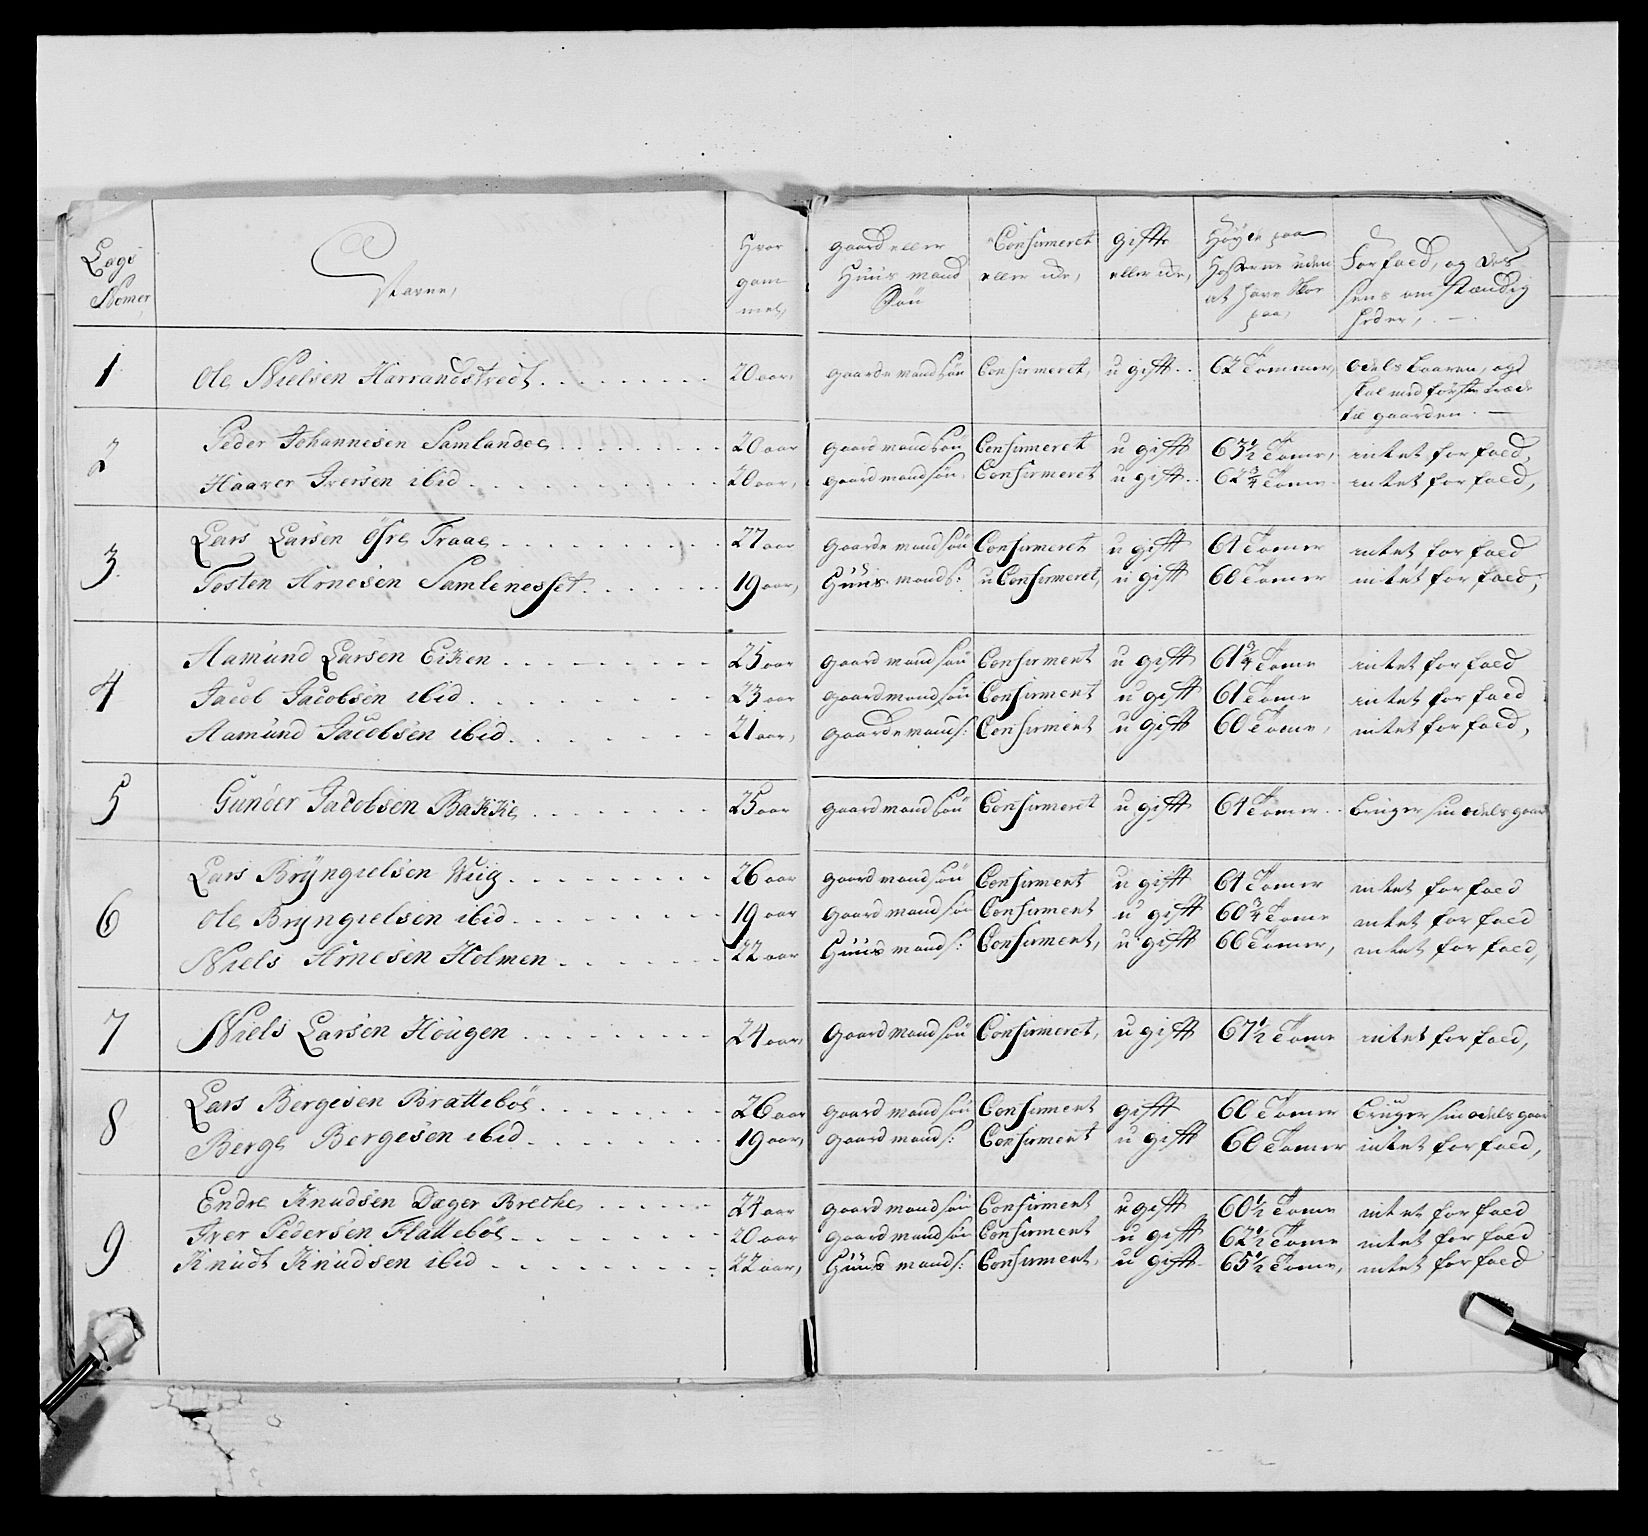 Lægs Nomer,
Navne,
Hvor gam mel,
gaard eller Huus mand Søn
Confirmeret eller icke,
gifft eller icke,
Høyde paa Hosserne uden at have Skoe paa,
For fald, og des sens om stændig heder,
1 Ole Nielsen Harrandstvedt 20 aar, gaarde mand søn Confirmeret, u gifft 62 Tommer, odels baaren, og skal med første træde til gaarden.
2 Peder Johannesen Samlandee 20 aar gaard mand søn Confirmeret u gifft 63½ Tome, intet for fald,
Haaver Iversen ibid 20 aar, gaard mand søn, Confirmeret u gifft 62¾ Tome intet for fald,
3 Lars Larsen Øfre Traae 27 aar gaarde mand søn Confirmeret u gifft 61 Tomer intet for fald
Tosten Arnesen Samlenesset 19 aar, Huus mand s: u Confirmeret, u gifft 60 Tomer intet for fald,
4 Aamund Larsen Eiken 25 aar gaard mand søn Confirment u gifft 61¾ Tome intet for fald
Jacob Jacobsen ibid 23 aar gaard mand søn Confirment u gifft 61 Tome intet for fald
Aamund Jacobsen ibid 21 aar, gaarde mand s: Confirment u gifft 60 Tome, intet for fald,
5 Gunder Jacobsen Bakke 25 aar gaard mand søn Confirmeret u gifft 64 Tomer bruger sin odels gaar
6 Lars Bryngielsen Wiig 26 aar gaard mand søn Confirment u gifft 64 Tomer intet for fald
Ole Bryngielsen ibid 19 aar gaard mand søn Confirment u gifft 60¾ Tome intet for fald
Niels Arnesen Holmen 22 aar Huus mand s: Confirment, u gifft 66 Tomer, intet for fald,
7 Niels Larsen Hougen 24 aar, gaard mand søn Confirmeret, u gifft 67½ Tome intet for fald,
8 Lars Bergesen Brattebøe 26 aar gaard mand søn Confirment gifft 60 Tomer bruger sin odels gaar
Berge Bergesen ibid 19 aar, gaard mand s: Confirment u gifft 60 Tomer intet for fald,
9 Endre Knudsen Dæger Brecke 24 aar gaard mand søn Confirment u gifft 60½ Tome intet for fald
Iver Pedersen Flattebøe 20 aar gaard mand søn Confirment u gifft 62½ Tome intet for fald
Knudt Knudsen ibid 22 aar, Huus mand s: Confirment, u gifft 65½ Tome, intet for fald